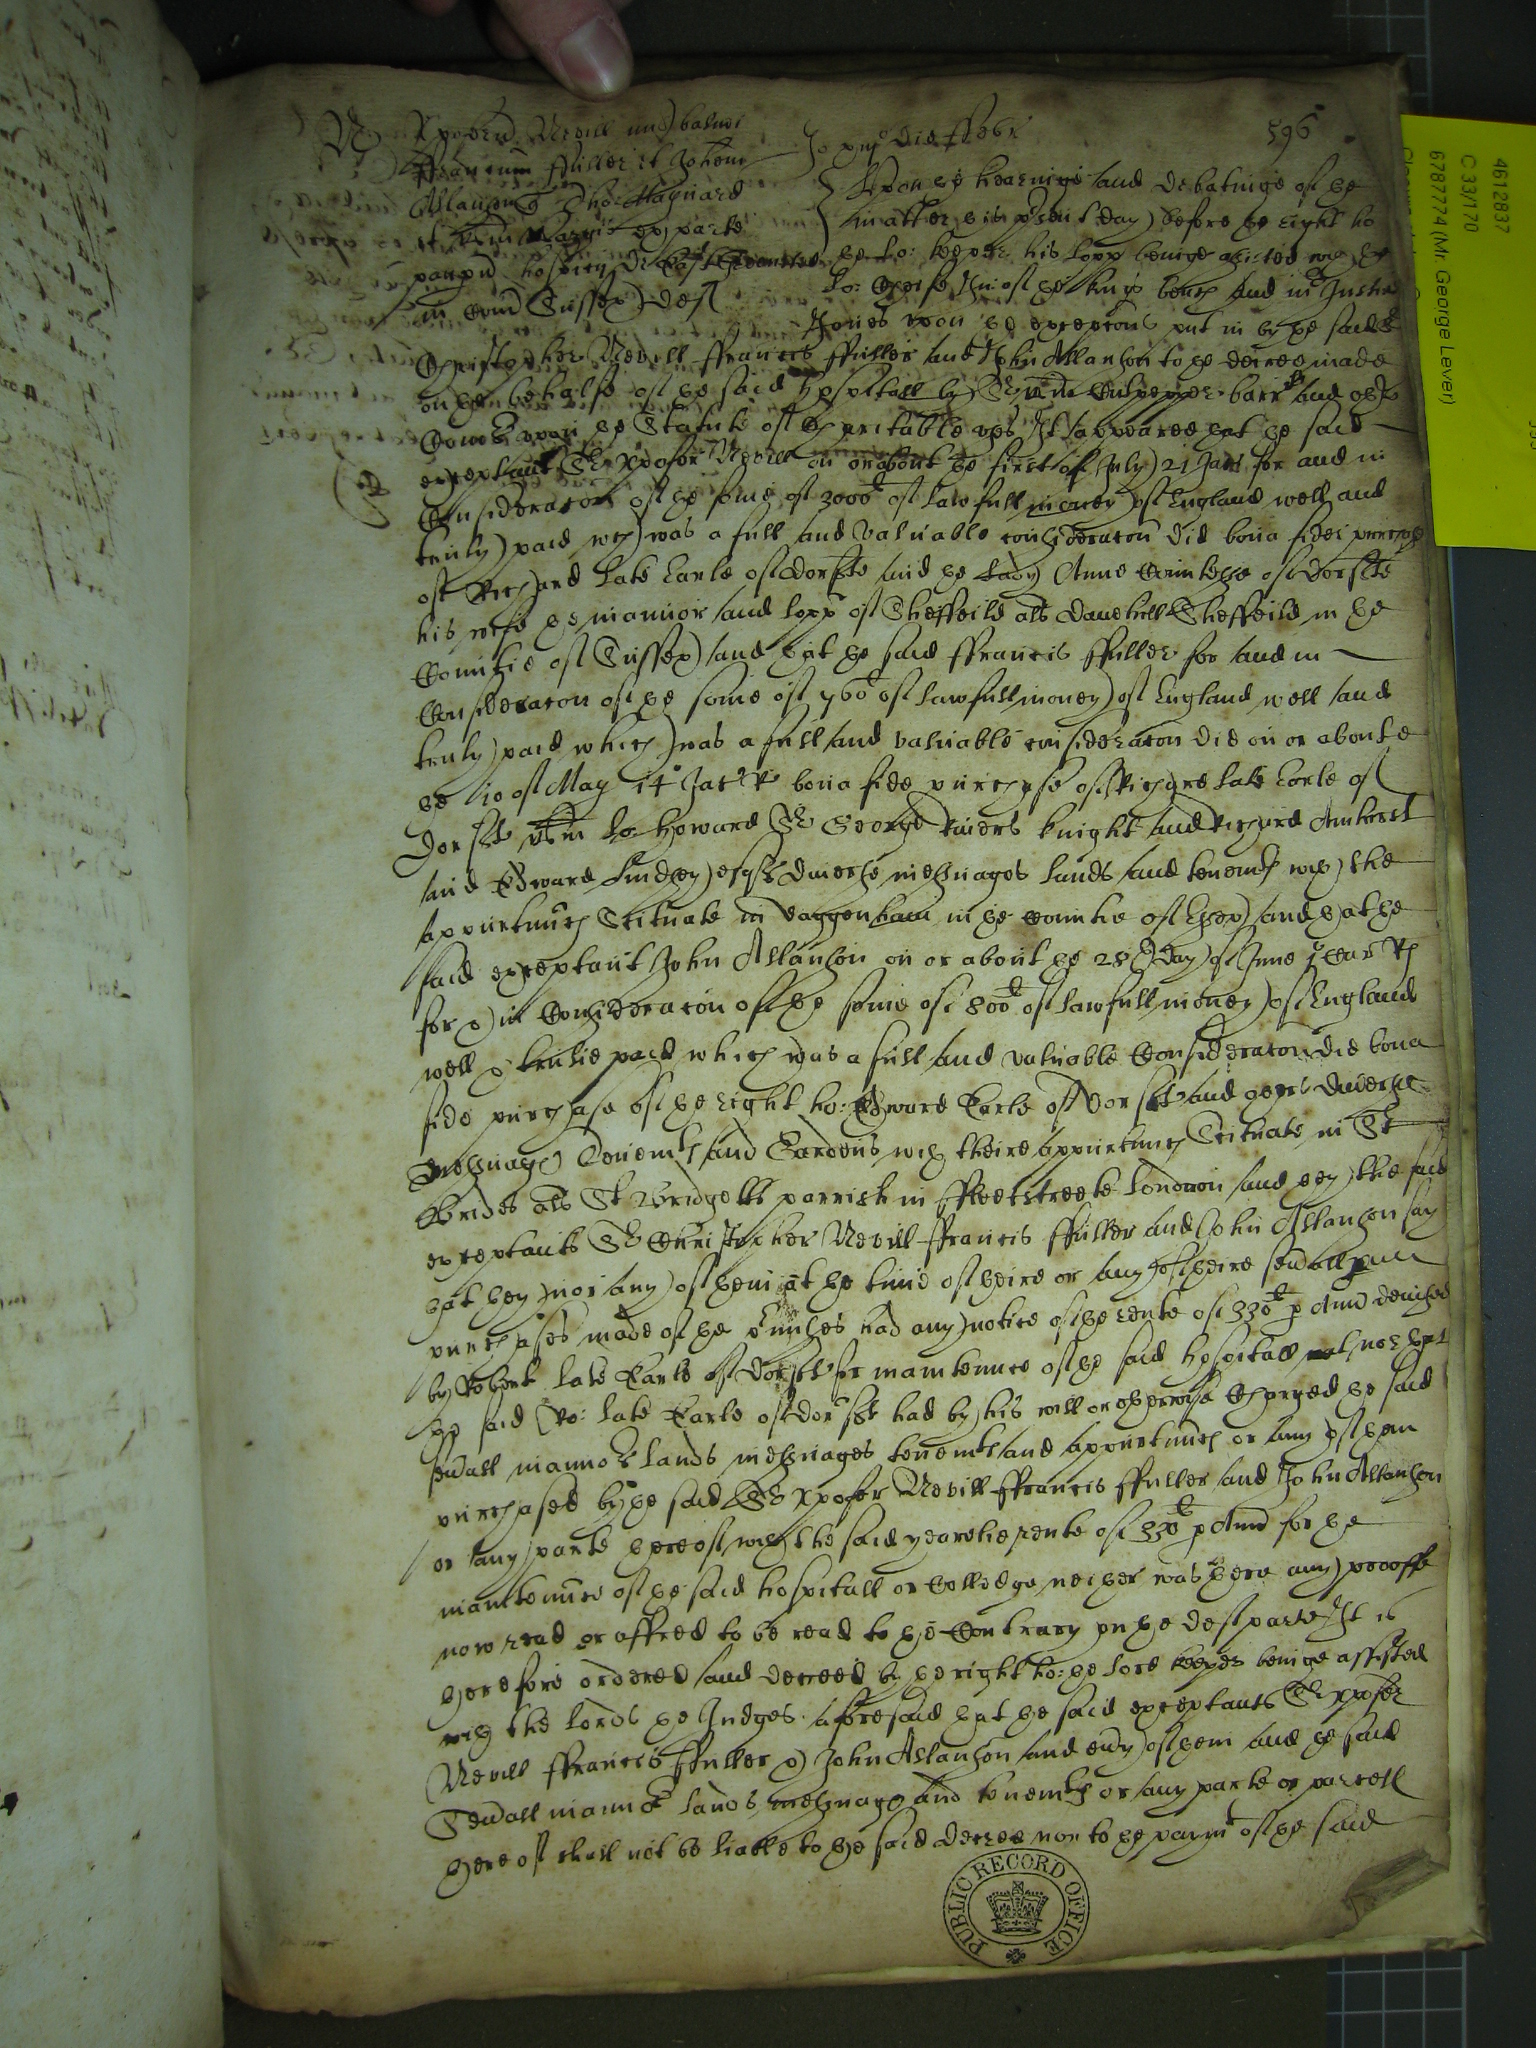 596
Xpoferū Nevill mit balnei
ffranciscum ffuller et Johem
Allanson Tho: Maynard
et ex parte
paupū hospitij de East Greensted
in Com Sussex Deft
Jo die ffebr
Upon ye hearinge and debatinge of ye
matter this pr̃sent day before ye right ho
ye lo: keeper his lopp beinge assisted wth ye
lo: Cheife Justice of ye kings bench and mr Justice
Jones upon ye excepcons put in by ye said Sr
Christopher Nevill ffrancis ffuller and John Allanson to ye decree made
on ye behalfe of ye said hospitall by Sr Wm Culpepper barrt and othr
Comrs upon ye Statute of Charitable uses It appeared that ye said
exceptant Sr Xpofer Nevill on or about ye first of July 21 Jac for and in
Consideracon of ye some of 3000l of lawfull money of England well and
truly paid wch was a full and valuable consideracon did bona fidei purchase
of Richard late Earle of Dorsett and ye Lady Anne Countesse of Dorsett
his wife ye mannor and lopp of Sheffeild als Danehill Sheffeild in ye
Countie of Sussex and that ye said ffrancis ffuller for and in
Consideracon of ye some of 760l of lawfull money of England well and
truly paid which was a full and valuable consideracon did on or aboute
ye 10 of May 14o Jac R bona fide purchase of Richard late Earle of
Dorsett Wm Lo: Howard Sr George Rivers knight and Richard Amherst
and Edward Lindsey esqrs diverse messuages lands and tenemts wth the
appurtnncs Scituate in Daggenham in ye countie of Essex and that ye
said exceptant John Allanson on or about ye 28th day of June Car Rs
for & in Consideracon of ye some of 800l of lawfull money of England
well & trulie paid which was a full and valuable Consideracon did bona
fide purchase of ye right ho: Edward Earle of Dorsett and others diverse
messuages Tenemts and Gardens wth theire appurtnncs Scituate in St
Brides als St Bridgetts parrish in ffleetstreete London and yey the said
exceptants Sr Christopher Nevill ffrancis ffuller and John Allanson say
that they nor any of them at ye time of theire or any of theire sevall
purchases made of ye pr̃misses had any notice of ye rente of 330l p Annū devised
by Robert late Earle of Dorsett for maintennce of ye said hospitall nor that
ye said Ro: late Earle of Dorsett had by his will or otherwise Charged ye said
sevall mannors lands messuages tenemts and appurtnncs or any of them
purchased by ye said Sr Xpofer Nevill ffrancis ffuller and John Allanson
or any parte thereof wth the said yearelie rente of 330l p Annū for ye
maintennce of ye said hospitall or Colledge neither was there any prooffe
now read or offred to be read to ye Contrary on ye deft parte It is
therefore ordered and decreed by ye right ho: ye lord keeper beinge assisted
wth the lords ye Judges aforesaid that ye said exceptants Sr Xpofer
Nevill ffrancis ffuller & John Allanson and evry of them and ye said
Sevall mannors lands messuages and tenemts or any parte or parcell
thereof shall not be liable to ye said decree nor to ye paymt of ye said
PUBLIC RECORD OFFICE
4612837
C 33/170
6787774 (Mr. George Lever)